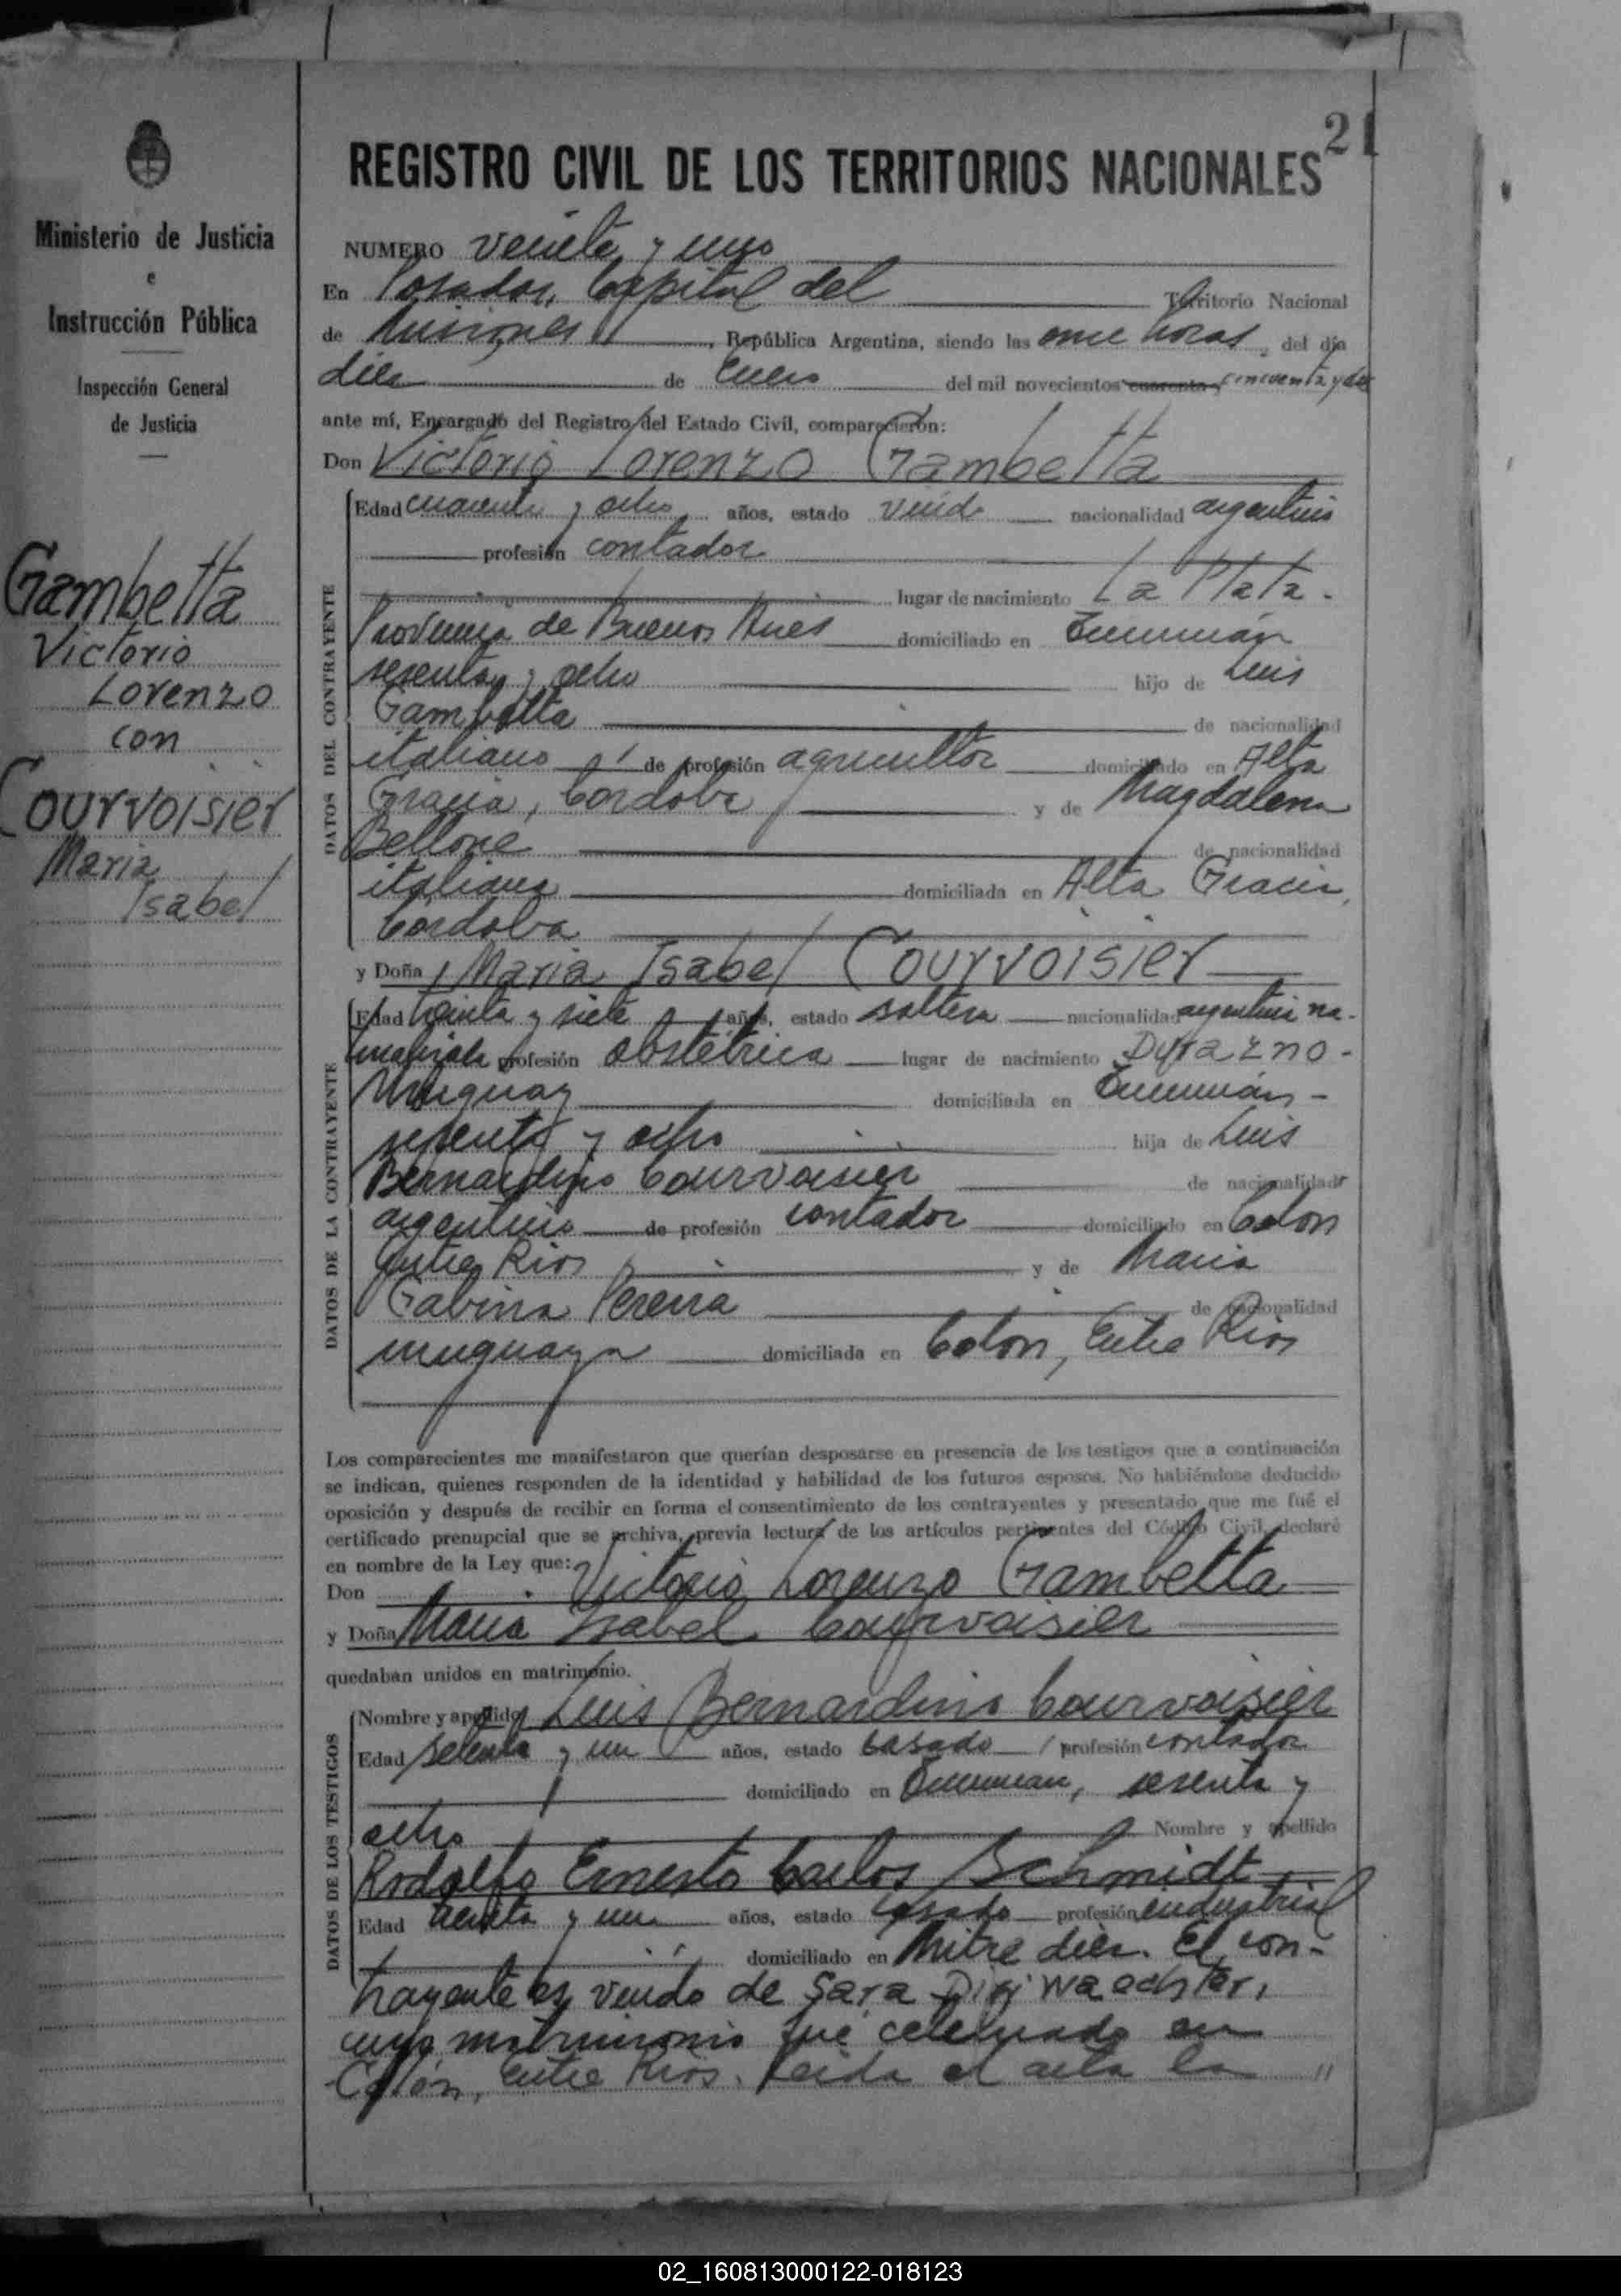 21
Ministerio de Justicia
e
Instrucción Pública
Inspección General
de Justicia
Gambetta
Victorio
Lorenzo
con
Courvoisier
Maria
Isabel
REGISTRO CIVIL DE LOS TERRITORIOS NACIONALES
NUMERO veinte y uno
En Posadas, Capital del Territorio Nacional
de Misiones, República Argentina, siendo las once horas del día
diez de Enero del mil novecientos cuarenta y cincuenta y dos
ante mí, Encargado del Registro del Estado Civil, comparecieron:
Don Victorio Lorenzo Gambetta
DATOS DEL CONTRAYENTE
Edad cuarenta y ocho años, estado viudo nacionalidad argentino
profesión contador
lugar de nacimiento La Plata.
Provincia de Buenos Aires domiciliado en Tucumán
sesenta y ocho hijo de Luis
Gambetta de nacionalidad
italiano de profesión agricultor domiciliado en Alta
Gracia, Cordoba y de Magdalena
Bellone de nacionalidad
italiana domiciliada en Alta Gracia,
Cordoba
y Doña Maria Isabel Courvoisier
DATOS DE LA CONTRAYENTE
Edad y siete años, estado soltera nacionalidad argentina na-
profesión obstétrica lugar de nacimiento Durazno-
Uruguay domiciliada en Tucumán-
sesenta y ocho hija de Luis
Bernardino Courvoisier de nacionalidad
argentino de profesión contador domiciliado en Colon
Entre Rios y de Maria
Gabina Pereira de nacionalidad
uruguaya domiciliada en Colon, Entre Rios
Los comparecientes me manifestaron que querían desposarse en presencia de los testigos que a continuación
se indican, quienes responden de la identidad y habilidad de los futuros esposos. No habiéndose deducido
oposición y después de recibir en forma el consentimiento de los contrayentes y presentado que me fué el
certificado prenupcial que se archiva, previa lectura de los artículos pertinentes del Código Civil, declaré
en nombre de la Ley que:
Don Victorio Lorenzo Gambetta
y Doña Maria Isabel Courvoisier
quedaban unidos en matrimonio.
DATOS DE LOS TESTIGOS
Nombre y apellido Luis Bernardino Courvoisier
Edad setenta y un años, estado casado profesión contador
domiciliado en Tucuman, sesenta y
ocho Nombre y apellido
Rodolfo Ernesto Carlos Schmidt
Edad treinta y un años, estado casado profesión industrial
domiciliado en Mitre diez. El con-
trayente es viudo de Sara
cuyo matrimonio fué celebrado en
Colón, Entre Rios. Leida el acta la "
02_160813000122-018123